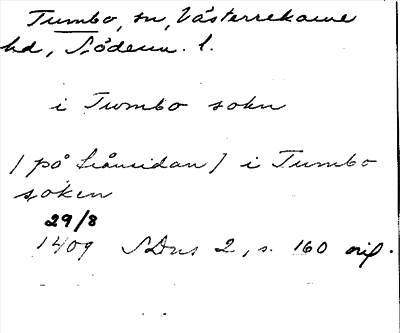 Tumbo, sn, Västerrekarne
hd, Söderm. l.
i Tumbo sokn
/ på frånsidan / i Tumbo
soken
29/8
1409 SDns 2, s. 160 orig.